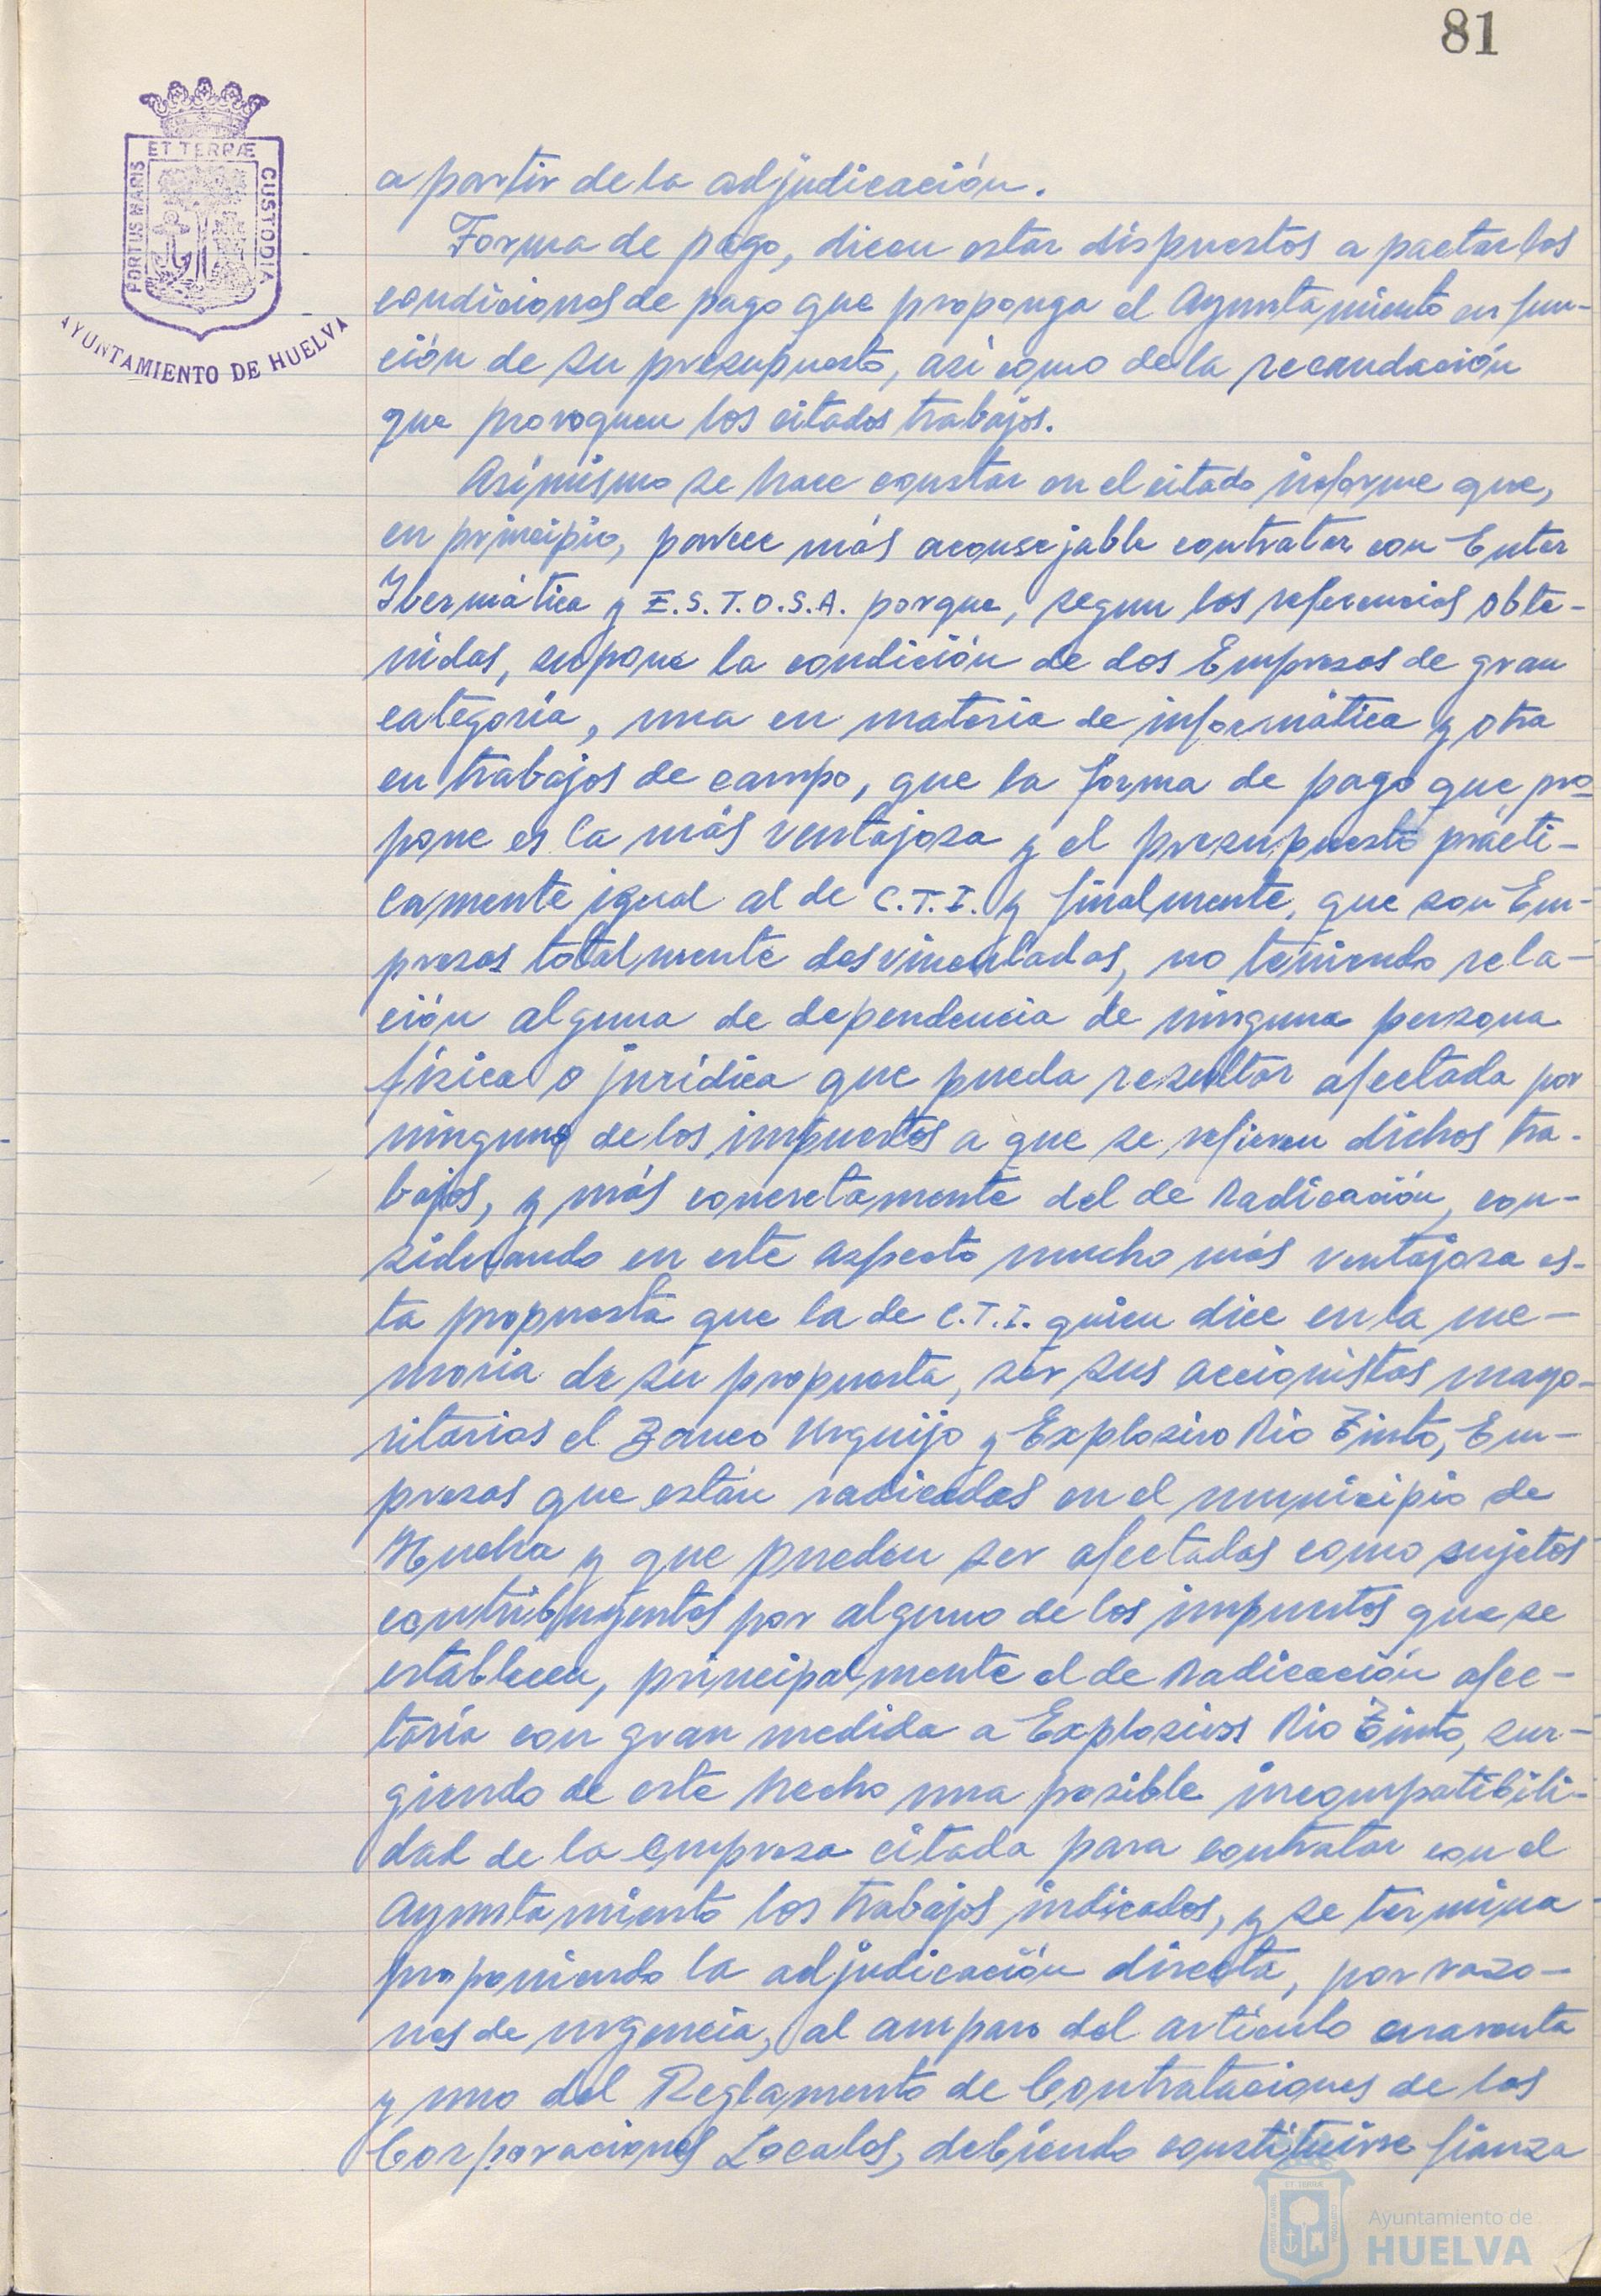 81
ET TERRÆ
PORTUS MARIS
CUSTODIA
AYUNTAMIENTO DE HUELVA
a partir de la adjudicación.
Forma de pago, dicen estar dispuestos a pactar las
condiciones de pago que proponga el Ayuntamiento en fun-
ción de su presupuesto, así como de la recaudación
que provoquen los citados trabajos.
Asímismo se hace constar en el citado informe que,
en principio, parece más aconsejable contratar con Entel
Ibermática y E.S.T.O.S.A. porque, segun las referencias obte-
nidas, supone la condición de dos Empresas de gran
categoría, una en materia de informática y otra
en trabajos de campo, que la forma de pago que pro-
pone es la más ventajosa y el presupuesto prácti-
camente igual al de C.T.I. y finalmente, que son Em-
presas totalmente desvinculadas, no teniendo rela-
ción alguna de dependencia de ninguna persona
física o jurídica que pueda resultar afectada por
ninguno de los impuestos a que se refieren dichos tra-
bajos, y más concretamente del de Radicación, con-
siderando en este aspecto mucho más ventajosa es-
ta propuesta que la de C.T.I. quien dice en la me-
moria de su propuesta, ser sus accionistas mayo-
ritarios el Banco Urquijo y Explosivo Rio Tinto, Em-
presas que están radicadas en el municipio de
Huelva y que pueden ser afectadas como sujetos
contribuyentes por alguno de los impuestos que se
establecen, principalmente el de Radicación afec-
taría con gran medida a Explosivos Rio Tinto, sur-
giendo de este hecho una posible incompatibili-
dad de la empresa citada para contratar con el
Ayuntamiento los trabajos indicados, y se termina
proponiendo la adjudicación directa, por razo-
nes de urgencia, al amparo del artículo cuarenta
y uno del Reglamento de Contrataciones de las
Corporaciones Locales, debiendo constituirse fianza
Ayuntamiento de
HUELVA